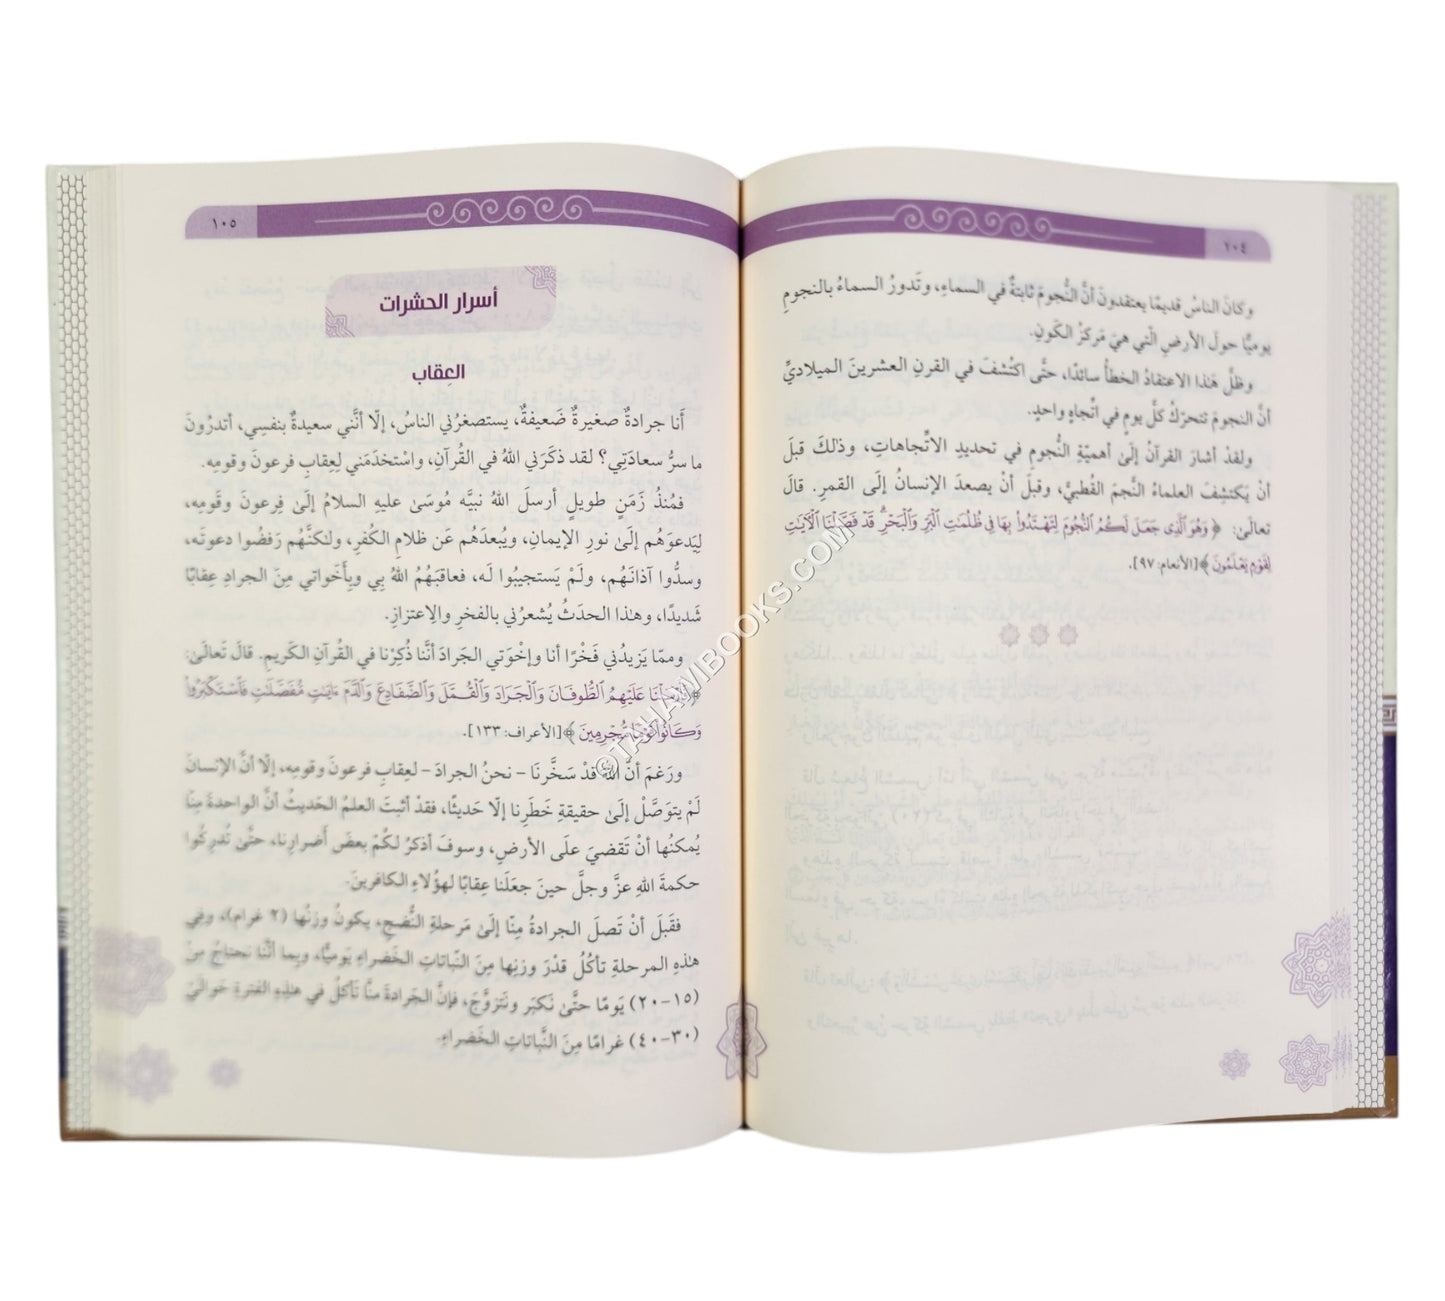 ١٠٤
وكانَ الناسُ قديمًا يعتقدونَ أنَّ النُّجومَ ثابتةٌ في السماءِ، وتَدورُ السماءُ بالنجومِ
يوميًّا حولَ الأرضِ الّتي هيَ مَركزُ الكَونِ.
وظلَّ هَذا الاعتقادُ الخطأُ سائدًا، حتَّى اكتُشفَ في القرنِ العشرينَ الميلاديِّ
أنَّ النجومَ تتحرّكُ كلَّ يومٍ في اتِّجاهٍ واحدٍ.
ولقدْ أشارَ القرآنُ إلَىٰ أهميّةِ النُّجومِ في تحديدِ الاتِّجاهاتِ، وذلكَ قبلَ
أنْ يَكتشِفَ العلماءُ النَّجمَ القُطبيَّ، وقبلَ أنْ يصعدَ الإنسانُ إلَى القمرِ. قالَ
تعالَىٰ: ﴿ وَهُوَ ٱلَّذِى جَعَلَ لَكُمُ ٱلنُّجُومَ لِتَهْتَدُوا۟ بِهَا فِى ظُلُمَٰتِ ٱلْبَرِّ وَٱلْبَحْرِ ۗ قَدْ فَصَّلْنَا ٱلْءَايَٰتِ
لِقَوْمٍ يَعْلَمُونَ ﴾[الأنعام: ٩٧].
١٠٥
أسرار الحشرات
العِقاب
أَنا جرادةٌ صغيرةٌ ضَعيفةٌ، يستصغرُني الناسُ، إلّا أنَّني سعيدةٌ بنفسِي، أتدرُونَ
ما سرُّ سعادَتِي؟ لقد ذكَرَني اللهُ في القُرآنِ، واسْتخدَمَني لِعِقابِ فرعونَ وقومِه.
فمُنذُ زَمَنٍ طويلٍ أرسلَ اللهُ نبيَّه مُوسَىٰ عليهِ السلامُ إلَىٰ فِرعونَ وقَومِه،
لِيَدعوَهُم إلَىٰ نورِ الإيمانِ، ويُبعدَهُم عَن ظلامِ الكُفرِ، ولكنَّهُم رَفضُوا دعوتَه،
وسدُّوا آذانَهُم، ولَمْ يَستجيبُوا لَه، فعاقبَهُمُ اللهُ بِي وبِأَخواتي مِنَ الجرادِ عِقابًا
شَديدًا، وهذا الحدَثُ يُشعرُني بالفخرِ والِاعتزازِ.
وممّا يَزيدُني فَخْرًا أنا وإخْوَتي الجَرادَ أنَّنا ذُكِرْنا في القُرآنِ الكَريمِ. قالَ تَعالَىٰ:
﴿فَأَرْسَلْنَا عَلَيْهِمُ ٱلطُّوفَانَ وَٱلْجَرَادَ وَٱلْقُمَّلَ وَٱلضَّفَادِعَ وَٱلدَّمَ ءَايَٰتٍ مُّفَصَّلَٰتٍ فَٱسْتَكْبَرُوا۟
وَكَانُوا۟ قَوْمًا مُّجْرِمِينَ ﴾[الأعراف: ١٣٣].
ورَغمَ أنَّ اللهَ قدْ سَخَّرَنا – نحنُ الجرادَ – لعِقابِ فرعونَ وقومِه، إلّا أنَّ الإنسانَ
لَمْ يتوَصَّلْ إلَىٰ حقيقةِ خَطَرِنا إلّا حَديثًا، فقدْ أثبتَ العلمُ الحَديثُ أنَّ الواحدةَ مِنَّا
يُمكنُها أنْ تَقضيَ علَى الأرضِ، وسوفَ أذكرُ لكُمْ بعضَ أضرارِنا، حتَّىٰ تُدرِكُوا
حكمةَ اللهِ عزَّ وجلَّ حينَ جعَلَنا عِقابًا لهؤُلاءِ الكافرينَ.
فقَبلَ أنْ تَصلَ الجرادةُ مِنّا إلَىٰ مَرحلةِ النُّضجِ، يكونُ وزنُها (٢ غرام)، وفِي
هذهِ المرحلةِ تأكُلُ قدْرَ وزنِها مِنَ النّباتاتِ الخَضراءِ يَوميًّا، وبِما أنَّنا نحتاجُ مِنْ
(١٥-٢٠) يَومًا حتَّىٰ نَكبَر ونَتزوَّجَ، فإنَّ الجَرادةَ منَّا تَأكلُ في هذِهِ الفترةِ حَوالَيْ
(٣٠-٤٠) غرامًا مِنَ النَّباتاتِ الخَضراءِ.
©TAHAMBOOKS.COM